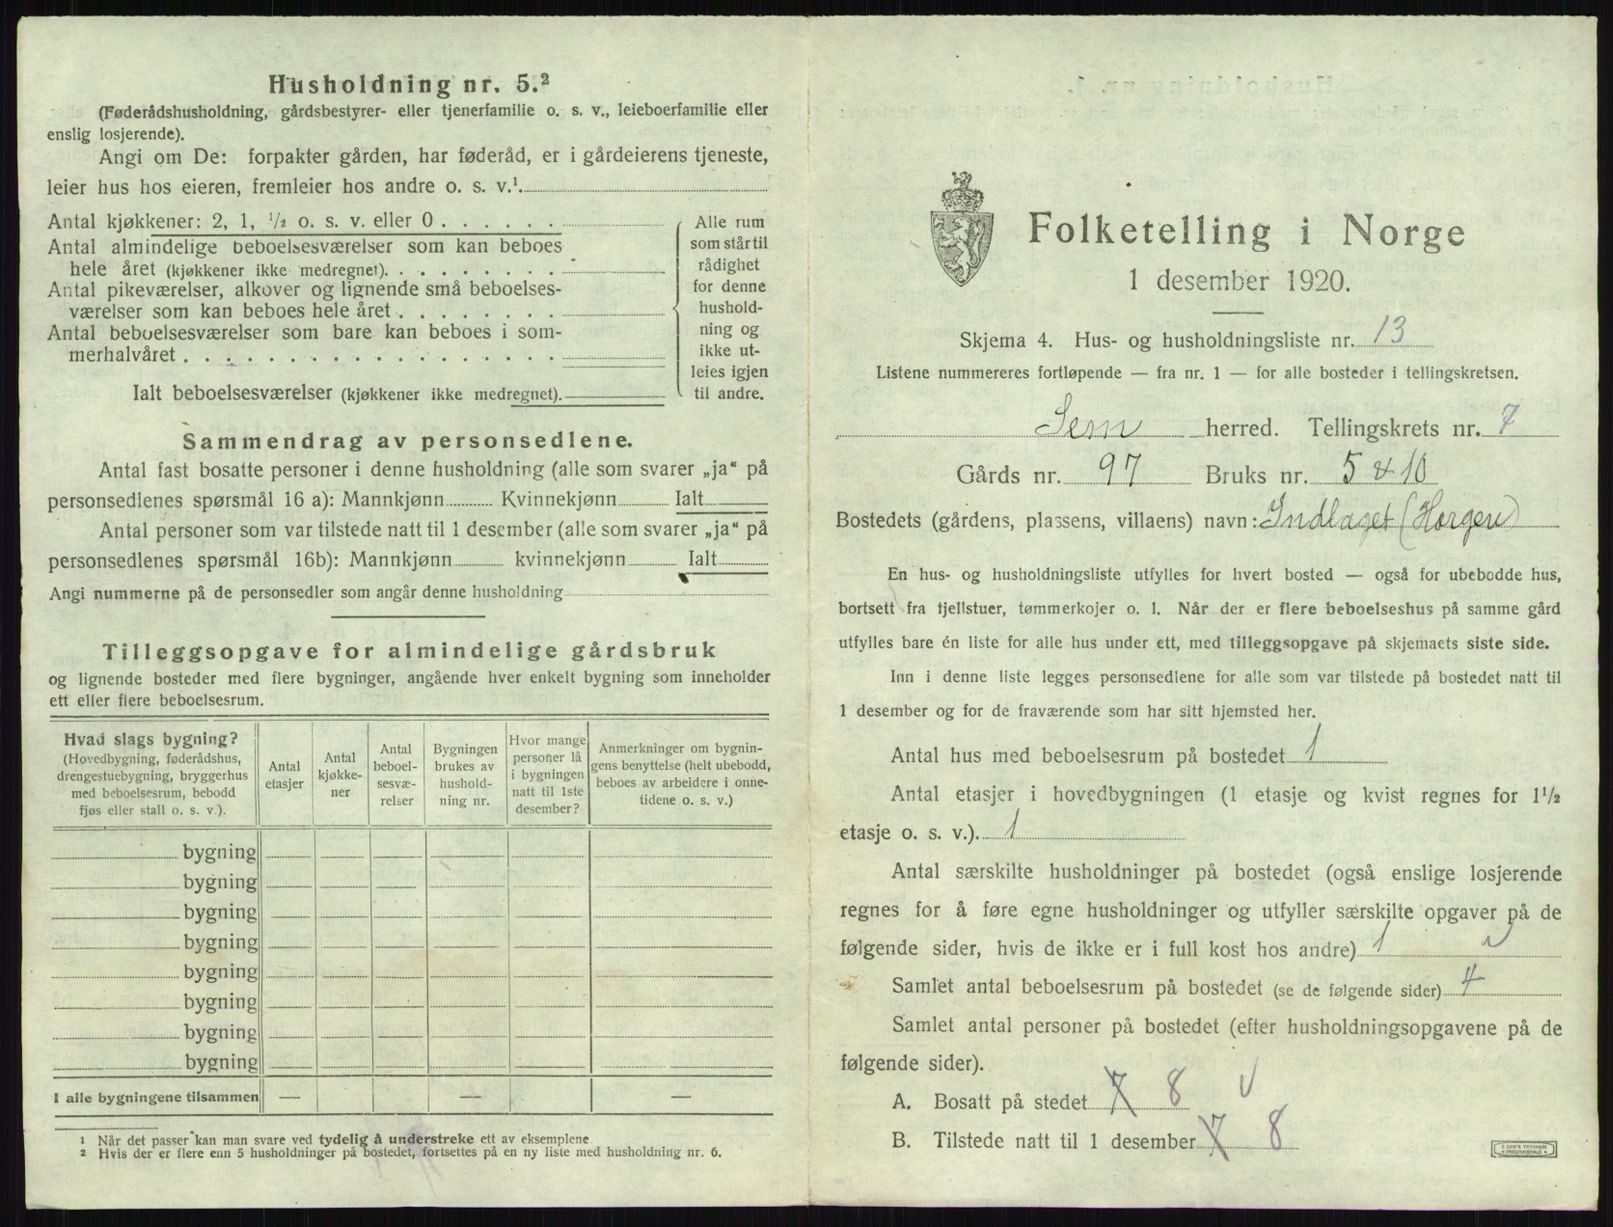 Husholdning nr. 5.²
(Føderådshusholdning, gårdsbestyrer- eller tjenerfamilie o. s. v., leieboerfamilie eller
enslig losjerende).
Angi om De: forpakter gården, har føderåd, er i gårdeierens tjeneste,
leier hus hos eieren, fremleier hos andre o. s. v.¹
Antal kjøkkener: 2, 1, ½ o. s. v. eller 0
Antal almindelige beboelsesværelser som kan beboes
hele året (kjøkkener ikke medregnet).
Antal pikeværelser, alkover og lignende små beboelses-
værelser som kan beboes hele året
Antal beboelsesværelser som bare kan beboes i som-
merhalvåret
Ialt beboelsesværelser (kjøkkener ikke medregnet).
Alle rum
som står til
rådighet
for denne
hushold-
ning og
ikke ut-
leies igjen
til andre.
Sammendrag av personsedlene.
Antal fast bosatte personer i denne husholdning (alle som svarer „ja“ på
personsedlenes spørsmål 16 a): Mannkjønn Kvinnekjønn Ialt
Antal personer som var tilstede natt til 1 desember (alle som svarer „ja“ på
personsedlenes spørsmål 16b): Mannkjønn kvinnekjønn Ialt
Angi nummerne på de personsedler som angår denne husholdning
Tilleggsopgave for almindelige gårdsbruk
og lignende bosteder med flere bygninger, angående hver enkelt bygning som inneholder
ett eller flere beboelsesrum.
Hvad slags bygning?
(Hovedbygning, føderådshus,
drengestuebygning, bryggerhus
med beboelsesrum, bebodd
fjøs eller stall o. s. v.).
Antal
etasjer
Antal
kjøkke-
ner
Antal
beboel-
sesvæ-
relser
Bygningen
brukes av
hushold-
ning nr.
Hvor mange
personer lå
i bygningen
natt til 1ste
desember?
Anmerkninger om bygnin-
gens benyttelse (helt ubebodd,
beboes av arbeidere i onne-
tidene o. s. v.)
bygning
bygning
bygning
bygning
bygning
bygning
bygning
bygning
I alle bygningene tilsammen — — —
¹ Når det passer kan man svare ved tydelig å understreke ett av eksemplene
² Hvis der er flere enn 5 husholdninger på bostedet, fortsettes på en ny liste med husholdning nr. 6.
Folketelling i Norge
1 desember 1920.
Skjema 4. Hus- og husholdningsliste nr. 13
Listene nummereres fortløpende — fra nr. 1 — for alle bosteder i tellingskretsen.
Sem herred. Tellingskrets nr. 7
Gårds nr. 97 Bruks nr. 5 & 10
Bostedets (gårdens, plassens, villaens) navn: Indlaget (Horgen)
En hus- og husholdningsliste utfylles for hvert bosted — også for ubebodde hus,
bortsett fra fjellstuer, tømmerkojer o. l. Når der er flere beboelseshus på samme gård
utfylles bare én liste for alle hus under ett, med tilleggsopgave på skjemaets siste side.
Inn i denne liste legges personsedlene for alle som var tilstede på bostedet natt til
1 desember og for de fraværende som har sitt hjemsted her.
Antal hus med beboelsesrum på bostedet 1
Antal etasjer i hovedbygningen (1 etasje og kvist regnes for 1½
etasje o. s. v.). 1
Antal særskilte husholdninger på bostedet (også enslige losjerende
regnes for å føre egne husholdninger og utfyller særskilte opgaver på de
følgende sider, hvis de ikke er i full kost hos andre) 1
Samlet antal beboelsesrum på bostedet (se de følgende sider) 4
Samlet antal personer på bostedet (efter husholdningsopgavene på de
følgende sider).
A. Bosatt på stedet 7 8
B. Tilstede natt til 1 desember 7 8